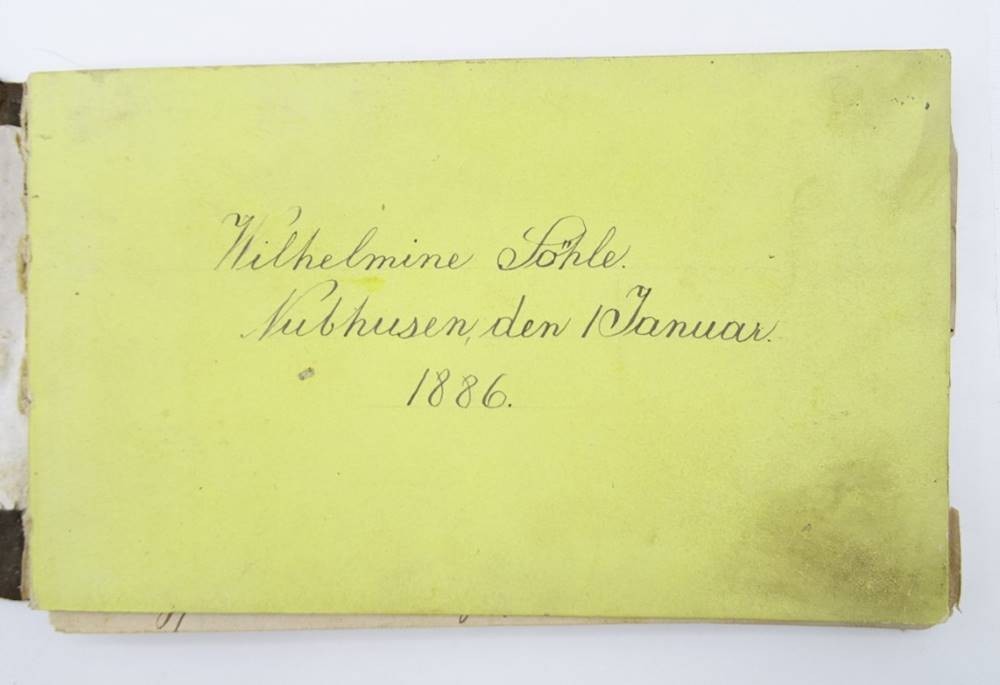 Wilhelmine Söhle.
Nubhusen, den 1 Januar.
1886.